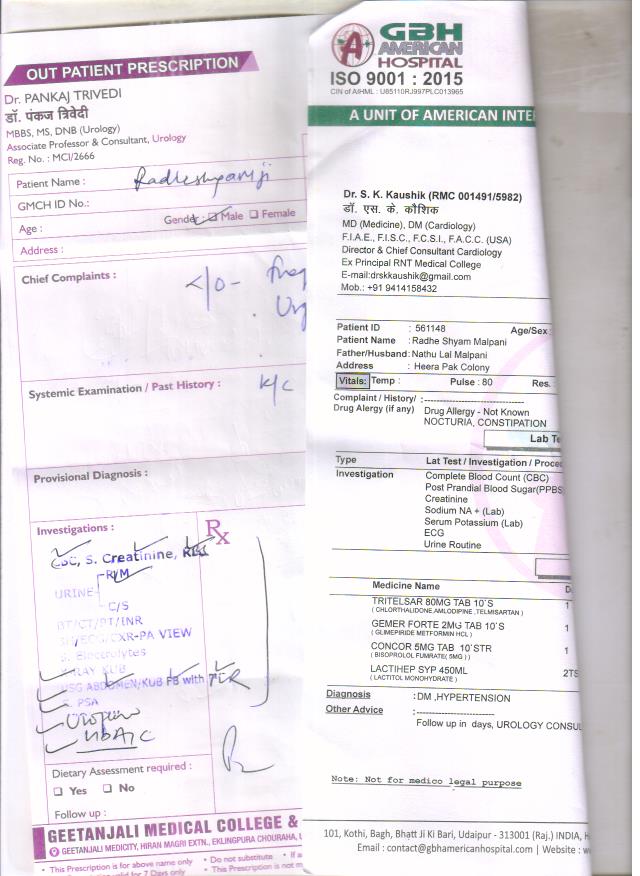 OUT PATIENT PRESCRIPTION
Dr. PANKAJ TRIVEDI
डॉ. पंकज त्रिवेदी
MBBS, MS, DNB (Urology)
Associate Professor & Consultant, Urology
Reg. No. : MCI/2666
Patient Name : Radheshyamji
GMCH ID No.:
Age : Gender : Male Female
Address :
Chief Complaints :
c/o -
Systemic Examination / Past History : K/C
Provisional Diagnosis :
Investigations : Rx
CBC, S. Creatinine, RBS
R/M
URINE
C/S
BT/CT/PT/INR
CXR-PA VIEW
S. Electrolytes
XRAY KUB
USG ABDOMEN/KUB PB with PVR
S. PSA
HbA1C
Dietary Assessment required :
Yes No
Follow up :
GEETANJALI MEDICAL COLLEGE &
GEETANJALI MEDICITY, HIRAN MAGRI EXTN., EKLINGPURA CHOURAHA, U
• This Prescription is for above name only • Do not substitute • If a
valid for 7 Days only • This Prescription is not m
GBH
AMERICAN
HOSPITAL
ISO 9001 : 2015
CIN of AIHML : U85110RJ997PLC013965
A UNIT OF AMERICAN INTE
Dr. S. K. Kaushik (RMC 001491/5982)
डॉ. एस. के. कौशिक
MD (Medicine), DM (Cardiology)
F.I.A.E., F.I.S.C., F.C.S.I., F.A.C.C. (USA)
Director & Chief Consultant Cardiology
Ex Principal RNT Medical College
E-mail:drskkaushik@gmail.com
Mob.: +91 9414158432
Patient ID : 561148 Age/Sex :
Patient Name : Radhe Shyam Malpani
Father/Husband : Nathu Lal Malpani
Address : Heera Pak Colony
Vitals: Temp : Pulse : 80 Res.
Complaint / History/ :
Drug Alergy (if any) Drug Allergy - Not Known
NOCTURIA, CONSTIPATION
Lab Te
Type Lat Test / Investigation / Proced
Investigation Complete Blood Count (CBC)
Post Prandial Blood Sugar(PPBS
Creatinine
Sodium NA + (Lab)
Serum Potassium (Lab)
ECG
Urine Routine
Medicine Name D
TRITELSAR 80MG TAB 10`S 1
( CHLORTHALIDONE,AMLODIPINE ,TELMISARTAN )
GEMER FORTE 2MG TAB 10`S 1
( GLIMEPIRIDE METFORMIN HCL )
CONCOR 5MG TAB 10`STR 1
( BISOPROLOL FUMRATE( 5MG ) )
LACTIHEP SYP 450ML 2TS
( LACTITOL MONOHYDRATE )
Diagnosis : DM ,HYPERTENSION
Other Advice :
Follow up in days, UROLOGY CONSUL
Note: Not for medico legal purpose
101, Kothi, Bagh, Bhatt Ji Ki Bari, Udaipur - 313001 (Raj.) INDIA, H
Email : contact@gbhamericanhospital.com | Website : w